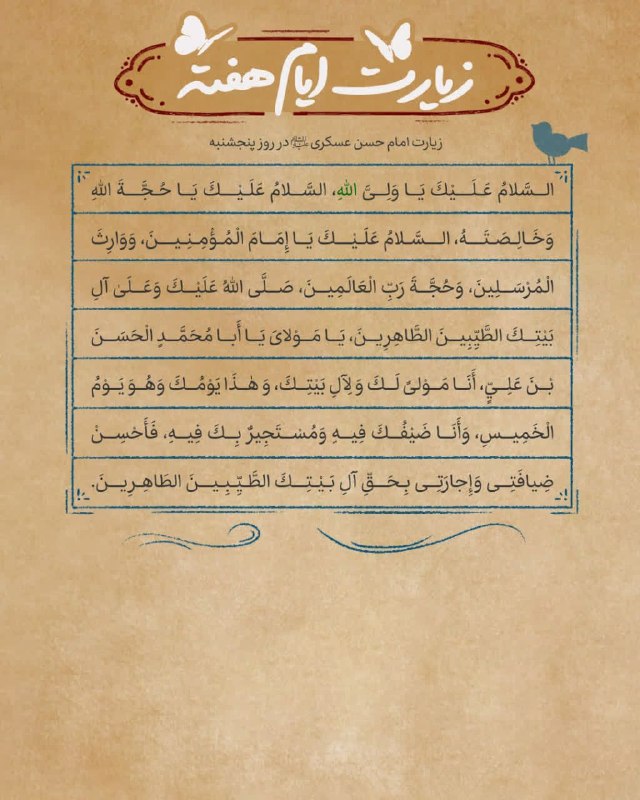 زیارت ایام هفته
زیارت امام حسن عسکری علیه‌السلام در روز پنجشنبه
السَّلامُ عَلَیْكَ یَا وَلِیَّ اللّٰهِ، السَّلامُ عَلَیْكَ یَا حُجَّةَ اللّٰهِ
وَخَالِصَتَهُ، السَّلامُ عَلَیْكَ یَا إِمَامَ الْمُؤْمِنِینَ، وَوَارِثَ
الْمُرْسَلِینَ، وَحُجَّةَ رَبِّ الْعَالَمِینَ، صَلَّى اللّٰهُ عَلَیْكَ وَعَلَىٰ آلِ
بَیْتِكَ الطَّیِّبِینَ الطَّاهِرِینَ، یَا مَوْلایَ یَا أَبا مُحَمَّدٍ الْحَسَنَ
بْنَ عَلِیٍّ، أَنَا مَوْلىً لَكَ وَلِآلِ بَیْتِكَ، وَهٰذَا یَوْمُكَ وَهُوَ یَوْمُ
الْخَمِیسِ، وَأَنَا ضَیْفُكَ فِیهِ وَمُسْتَجِیرٌ بِكَ فِیهِ، فَأَحْسِنْ
ضِیافَتِی وَإِجارَتِی بِحَقِّ آلِ بَیْتِكَ الطَّیِّبِینَ الطَاهِرِینَ.